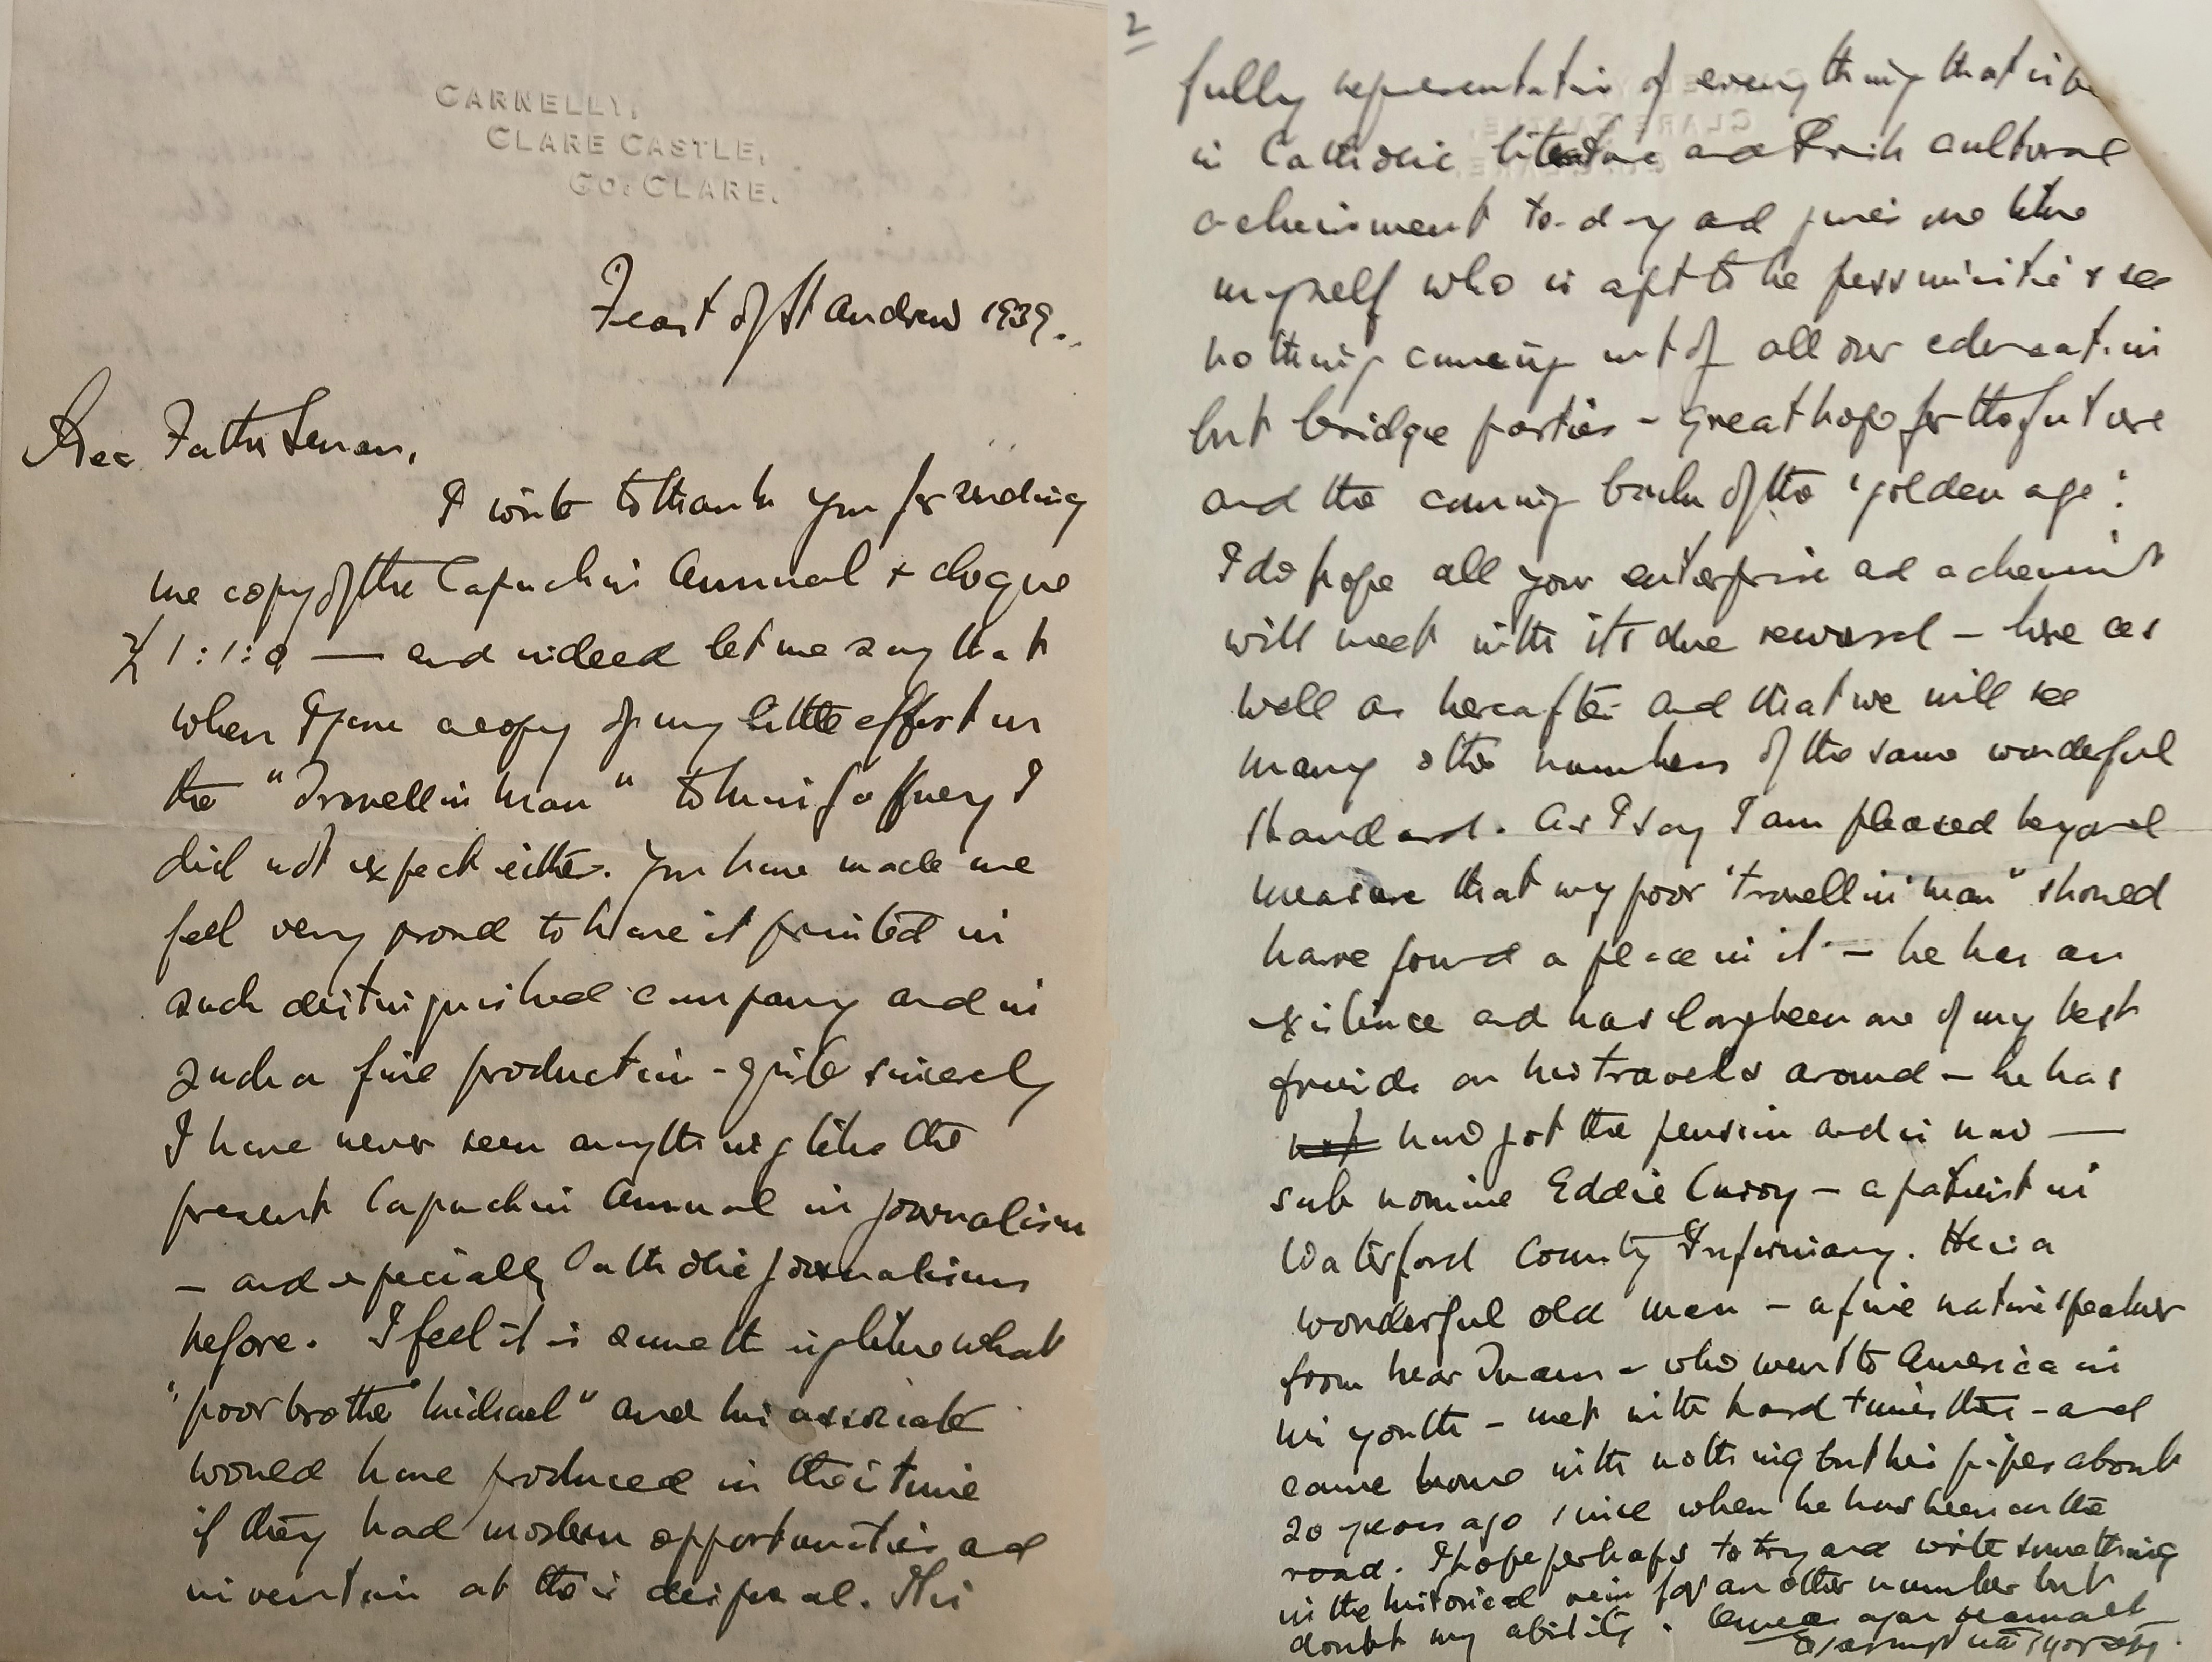 CARNELLY,
CLARE CASTLE,
CO. CLARE.
Feast of St Andrew 1939.
Dear Father Senan,
I write to thank you for sending
me copy of the Capuchin Annual & cheque
1:1:0 — and indeed let me say that
when I gave a copy of my little effort on
the "Travellin Man" to
did not expect either. You have made me
feel very proud to have it printed in
such distinguished company and in
such a fine production - quite sincerely
I have never seen anything like the
present Capuchin Annual in journalism
— and especially Catholic journalism
before. I feel it is something like what
"poor brother Michael" and his associate
would have produced in their time
if they had modern opportunities and
invention at their disposal. It is
2
fully representative of everything that is
in Catholic literature and Irish cultural
achievement to-day and gives one like
myself who is apt to be pessimistic & see
nothing coming out of all our education
but bridge parties - great hope for the future
and the coming back of the 'golden age'.
I do hope all your enterprise and achievement
will meet with its due reward — here as
well as hereafter and that we will see
many other numbers of the same wonderful
standard. As I say I am pleased beyond
measure that my poor "travellin' man" should
have found a place in it — he has an
existence and has long been one of my best
friends on his travels around — he has
not now got the pension and is now —
sub nomine Eddie Curry — a patient in
Waterford County Infirmary. He is a
wonderful old man — a fine native speaker
from near Tuam - who went to America in
his youth - met with hard times there - and
came home with nothing but his pipes about
20 years ago since when he has been on the
road. I hope perhaps to try and write something
in the historical vein for another number but
doubt my ability.